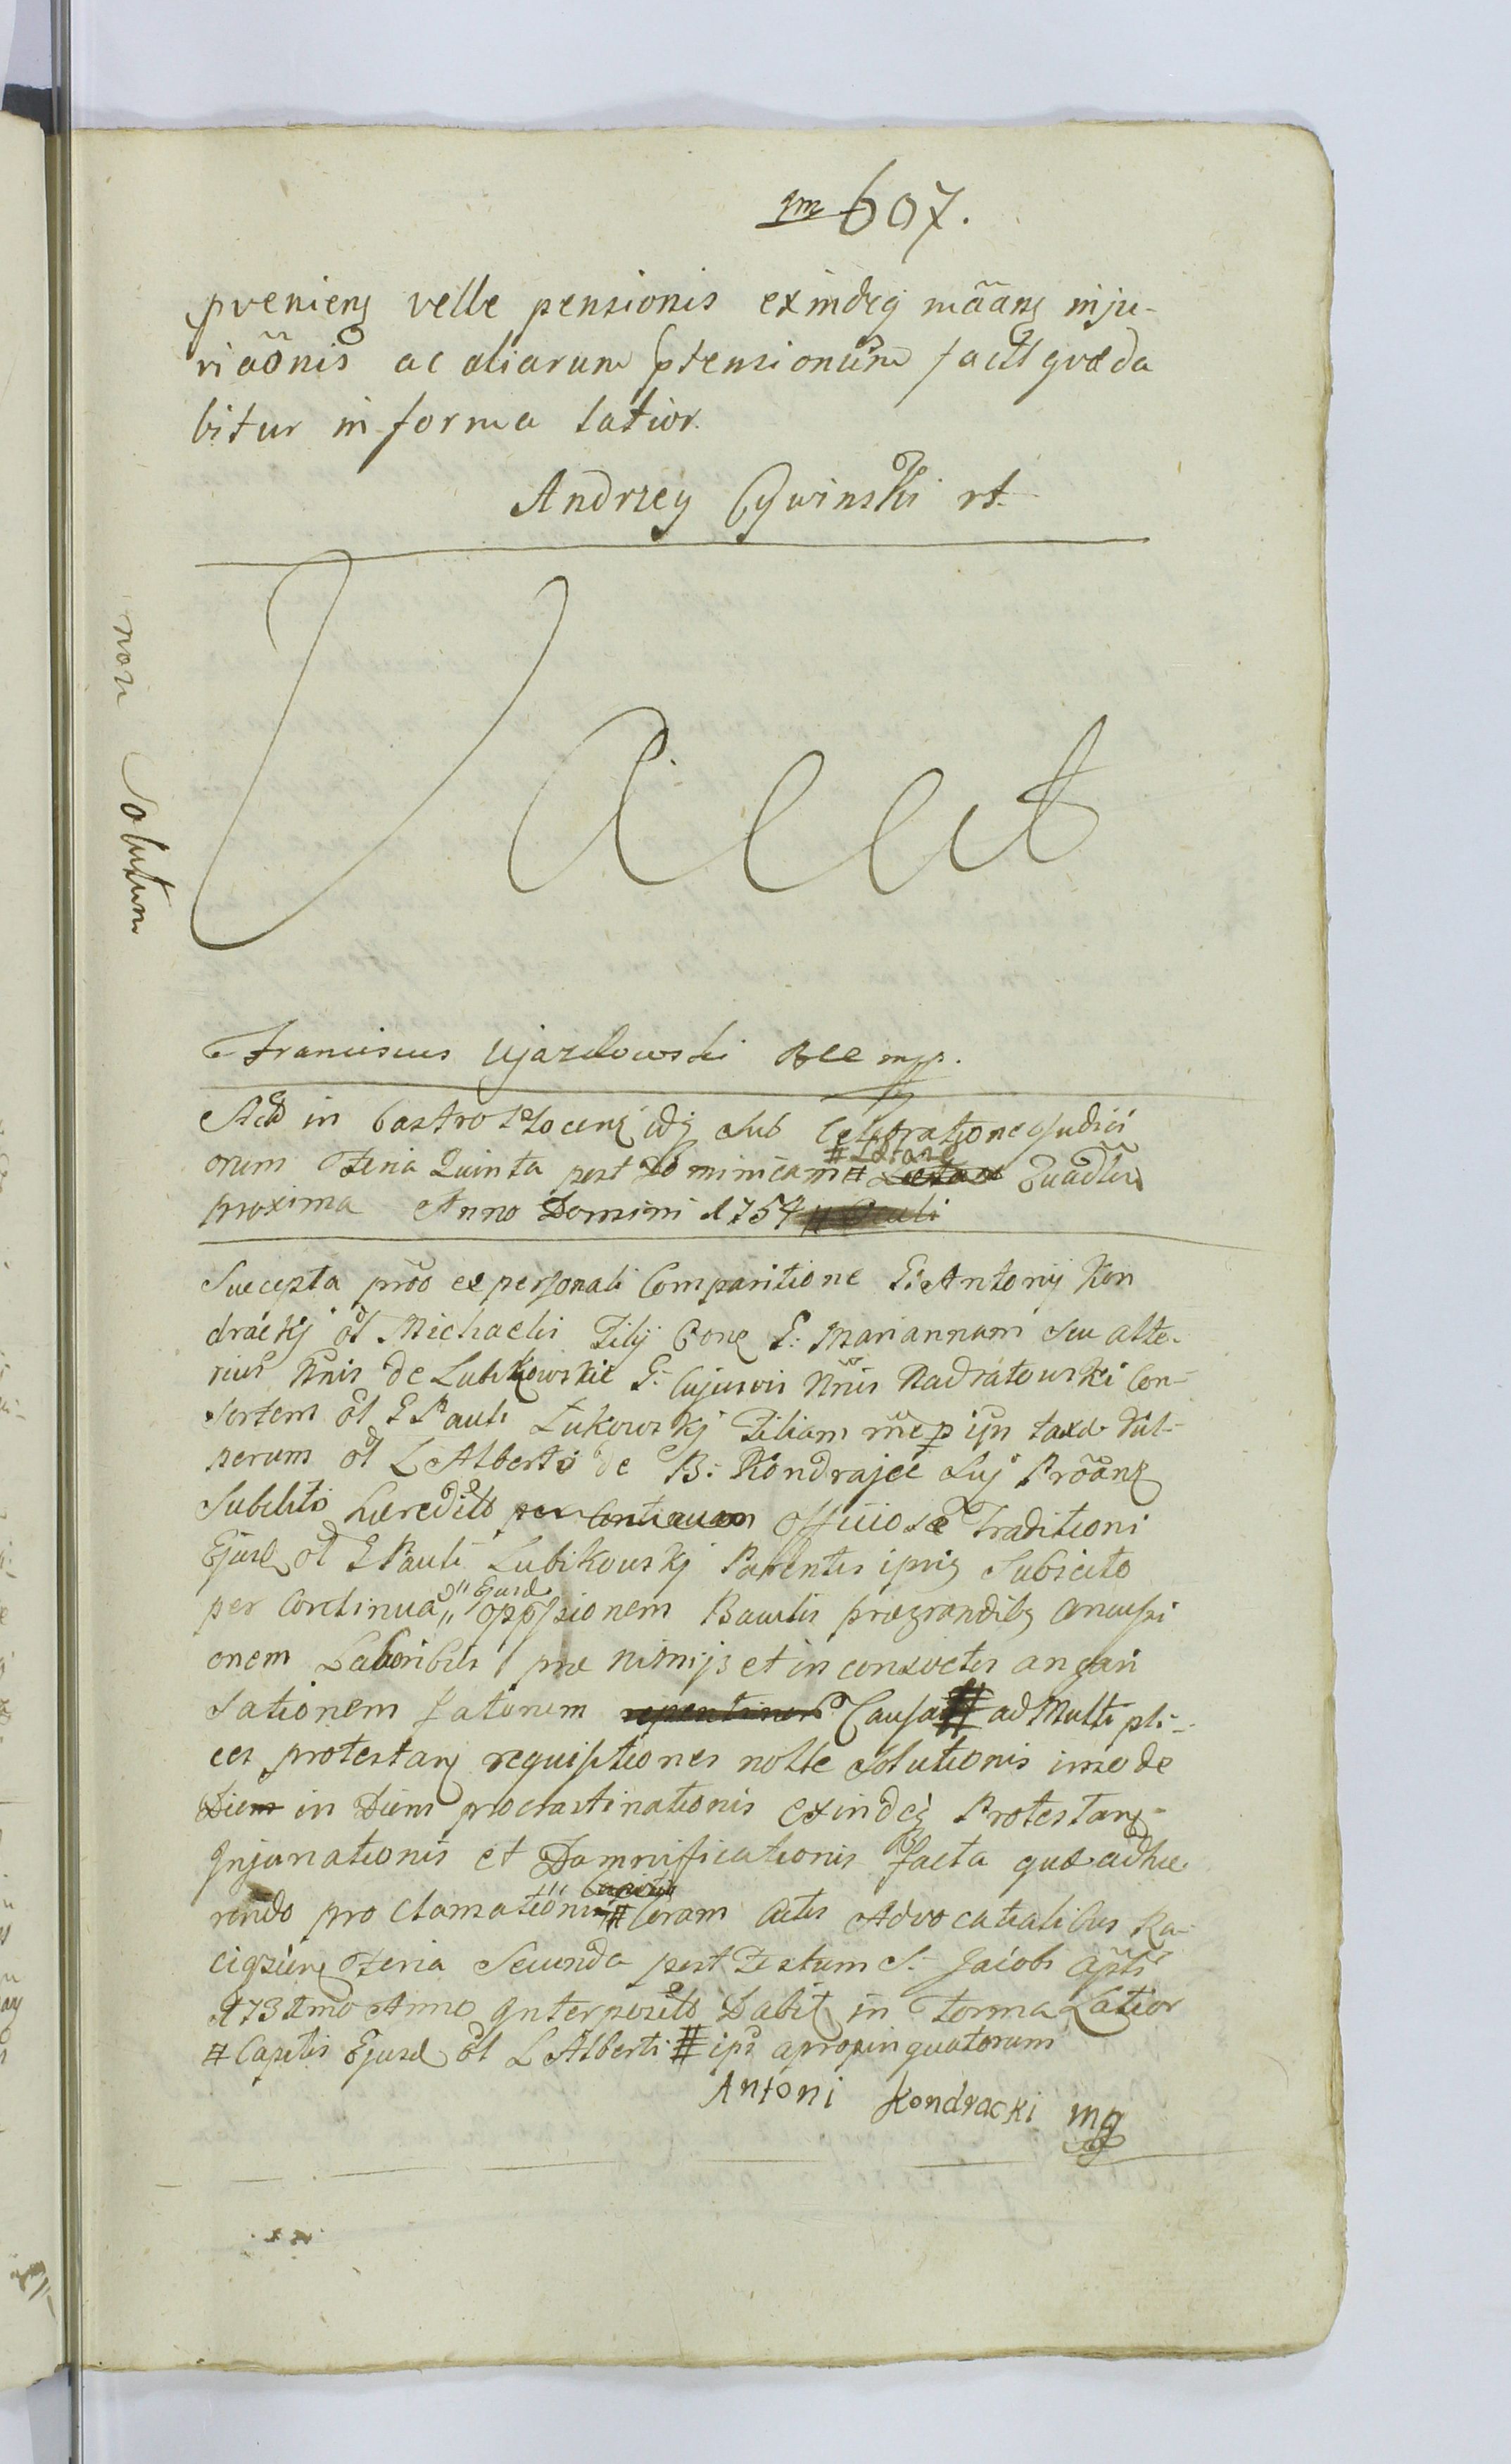 607.
preniens velle pensionis exindeq mããns inju-
riãonis ac aliarum ptensionum fact quæ da
bitur in forma latior.
Andrzey Cywinski rt.
non Solutum
Vacat
Franciscus Ujazdowski RCC mp.
Act in Castro Plocens idq sub Celebratione Judici
orum Feria Quinta post Dominicam # Lætare Quadles
# Lætare
proxima Anno Domini 1754 # Oculi
Suscepta prõo ex personali Comparitione G. Antonij Kon
dracki õl Michaelis Filij Conq G: Mariannam seu alte-
rius Nnis de Lubikowskie G: Cujusvis Nnis Radzatowski Con-
sortem õl G Pauli Lukowskj Filiam
nerum õl L Alberti de B: Kondrajec Suj Prõans
Subditi Hæredit per Continuam officiosæ Traditioni
Ejusd õl G Pauli Lubikowskj Parentis ipius Subjecto
per Continuã " Ejusd oppssionem Baculis prægrandibq Concussi
onem Laboribus præ nimijs et inconsvetis angari
sationem fatorum repentinor Causa # ad Multipli-
ces protestanq requisitiones nolle solutionis imo de
Diem in Diem procrastinationis exindeq Protestanq
Injuriationis et Damnificationis facta quæ adhæ
rendo proclamationi # Coram Actis Advocatialibus Ra-
ciązienq Feria Secunda post Festum S. Jacobi Apli
Anno Interposit Dabit in Forma Latior
# Capitis Ejusd õl L Alberti # ips apropinquatorum
Antoni Kondracki mp